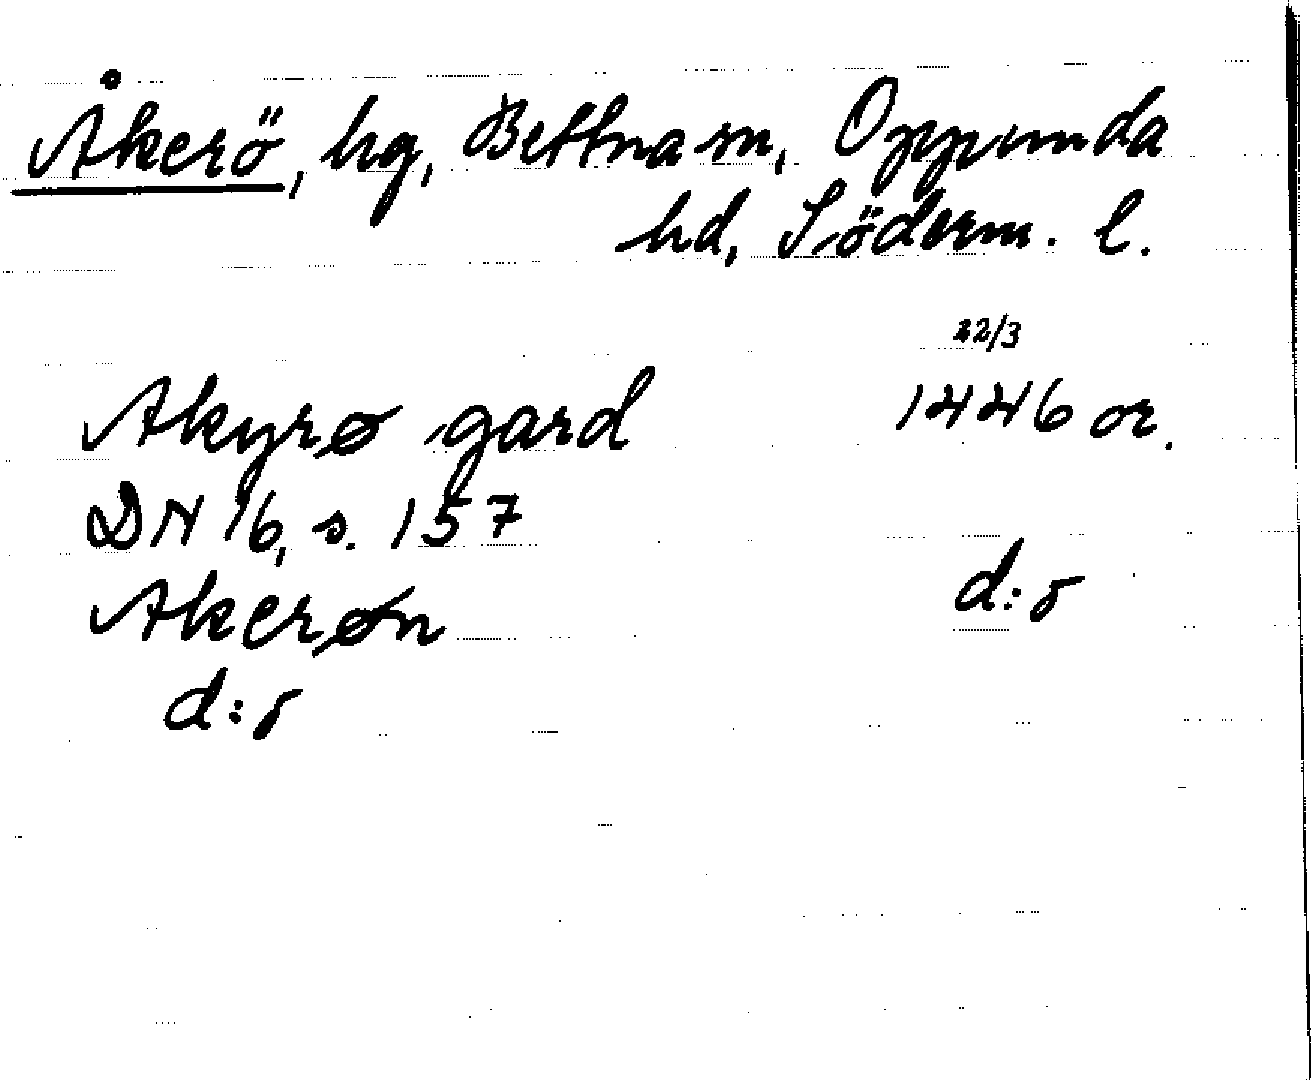 Åkerö, hg, Bettna sn, Oppunda
hd, Söderm. l.
22/3
Akyrø gard 1446 or.
DN 16, s. 157
Akerøn d:o
d:o